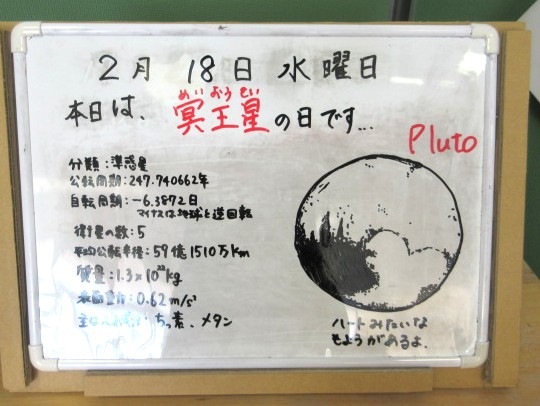 2月 18日 水曜日
めいおうせい
本日は、冥王星の日です…
Pluto
分類：準惑星
公転周期：247.740662年
自転周期：-6.3872日
マイナスは地球と逆回転
衛星の数：5
平均公転半径：59億1510万km
質量：1.3×10²²kg
表面重力：0.62m/s²
ちっ素、メタン
ハートみたいな
もようがあるよ。